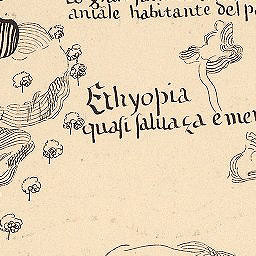 aniale habitante del pa
Ethyopia
quasi saluaça e mer